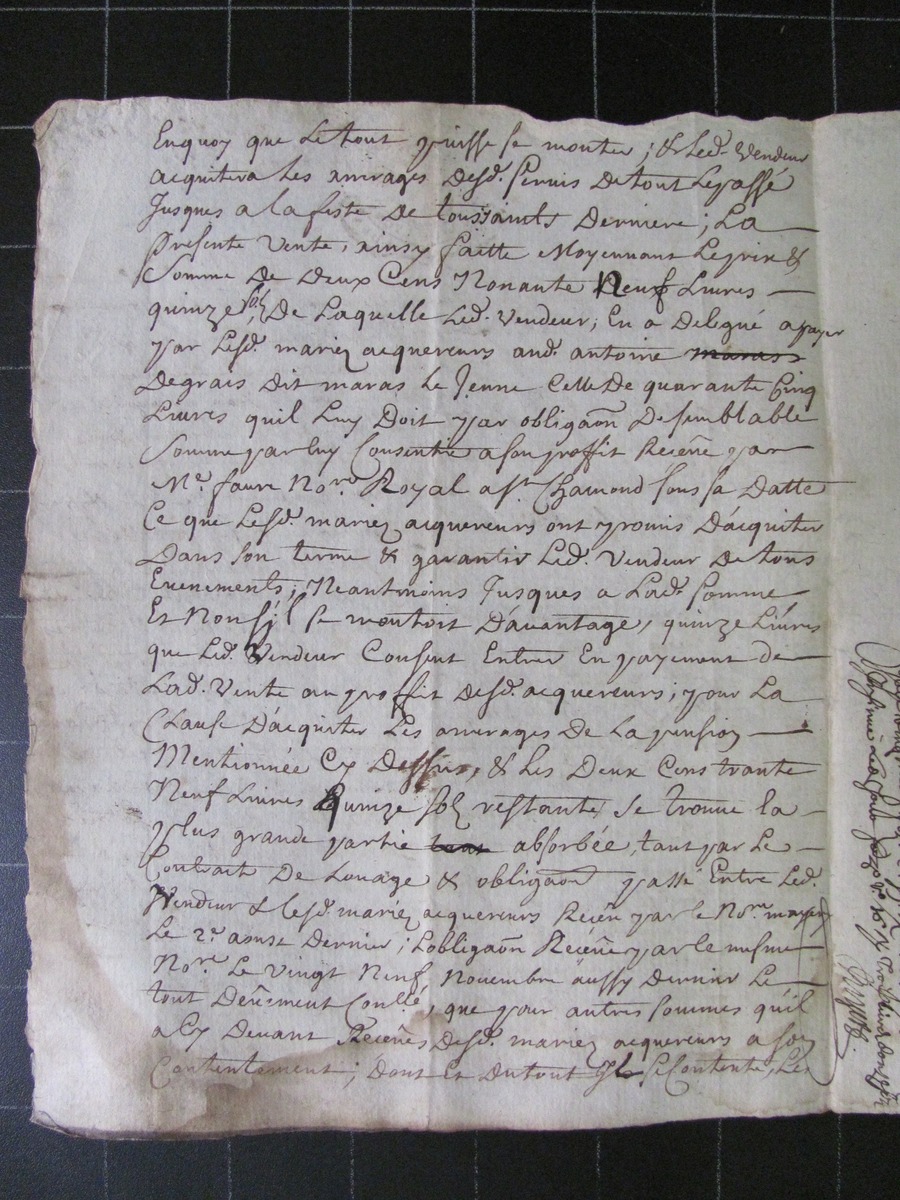 Enquoy que Letout puisse se monter ; & Led. Vendeur
acquitera Les arrérages Desd. Servis De tout Lepassé
Jusques a lafeste De toussaints Derniere ; La
presente Vente, ainsy faitte Moyennant Leprix &
Somme De Deux Cens Nonante Neuf Livres
quinze sol, De Laquelle Led. Vendeur, En a Delegué apayer
par Lesd. mariez acquereurs aud. antoine maras
Degrais Dit maras le Jeune Celle De quarante Cinq
Livres quil Luy Doit par obligaôn De semblable
Somme par luy Consentie a son proffit Recëue par
Me. faure Nore. Royal a st. Chamond sous sa Datte
Ce que Lesd. mariez acquereurs ont promis D'acquiter
Dans son terme & garantir Led. Vendeur De tous
Evenements, Neantmoins Jusques a Lad. somme
Et Non sy il se montoit D'avantage, quinze Livres
que Led. Vendeur Consent Entrer En payement de
Lad. Vente au proffit Desd. acquereurs ; pour La
Clause D'acquiter Les arrerages De La pension
Mentionnée Cy Dessus, & les Deux Cens trante
Neuf Livres quinze solz restante, se trouve la
plus grande partie tant absorbée, tant par Le
Contrait De Louage & obligaôn passé Entre Led.
Vendeur & lesd. mariez acquereurs Recëu par le Nore.
Le 2e. aoust Dernier ; Lobligaôn Recëue par le mesme
Nore. Le vingt Neuf Novembre aussy Dernier Le
tout Deüement Conllé, que pour autres sommes quil
a Cy Devant Recëues Desd. mariez acquereurs a son
Contentement ; Dont Et Du tout Il se Contente, Les